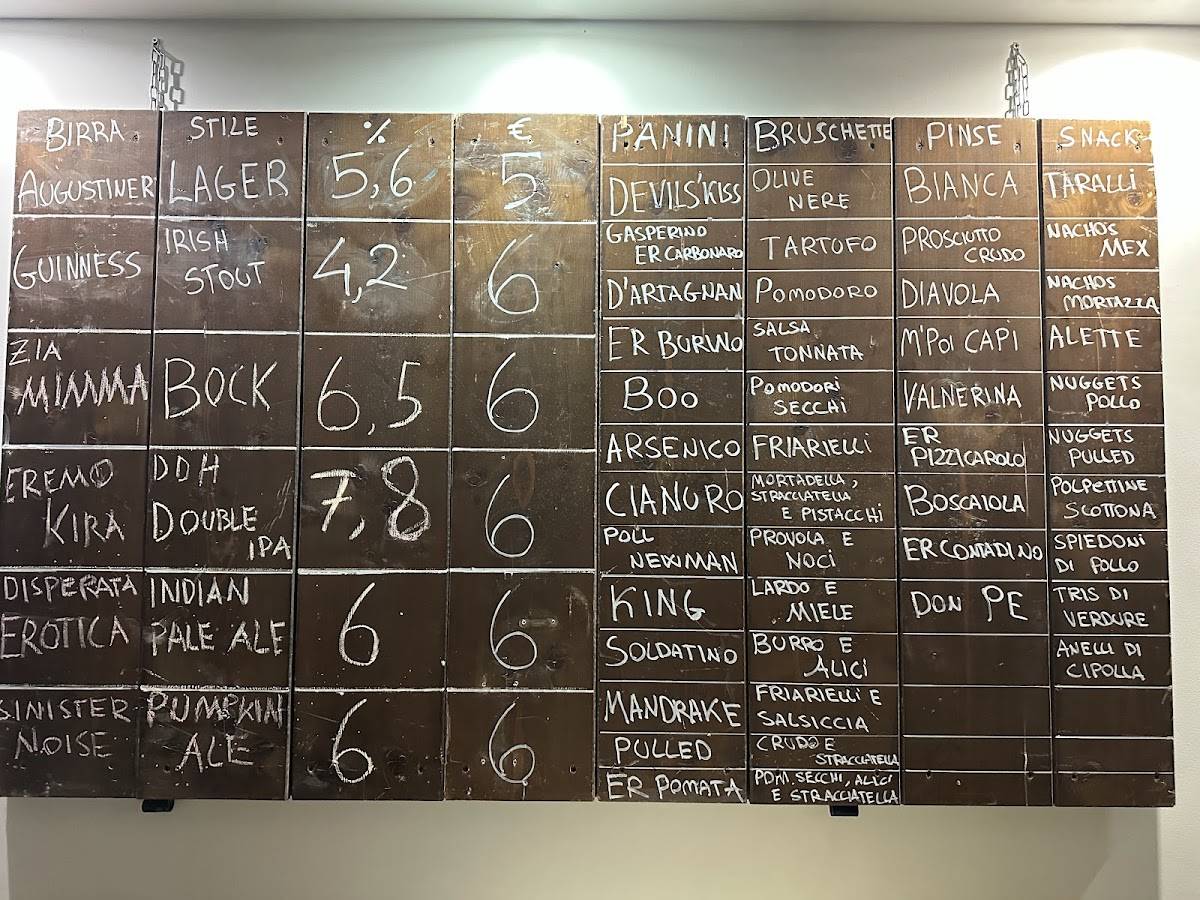 BIRRA
AUGUSTINER
GUINNESS
ZIA
MIMMA
EREMO
KIRA
DISPERATA
EROTICA
SINISTER
NOISE
STILE
LAGER
IRISH
STOUT
BOCK
DDH
DOUBLE
IPA
INDIAN
PALE ALE
PUMPKIN
ALE
%
5,6
4,2
6,5
7,8
6
6
€
5
6
6
6
6
6
PANINI
DEVILS'KISS
GASPERINO
ER CARBONARO
D'ARTAGNAN
ER BURINO
BOO
ARSENICO
CIANURO
POLL
NEWMAN
KING
SOLDATINO
MANDRAKE
PULLED
ER POMATA
BRUSCHETTE
OLIVE
NERE
TARTOFO
POMODORO
SALSA
TONNATA
POMODORI
SECCHI
FRIARIELLI
MORTADELLA,
STRACCIATELLA
E PISTACCHI
PROVOLA E
NOCI
LARDO E
MIELE
BURRO E
ALICI
FRIARIELLI E
SALSICCIA
CRUDO E
STRACCIATELLA
POM SECCHI, ALICI
E STRACCIATELLA
PINSE
BIANCA
PROSCIUTTO
CRUDO
DIAVOLA
M'POI CAPÌ
VALNERINA
ER
PIZZICAROLO
BOSCAIOLA
ER CONTADINO
DON PE
SNACK
TARALLI
NACHOS
MEX
NACHOS
MORTAZZA
ALETTE
NUGGETS
POLLO
NUGGETS
PULLED
POLPETTINE
SCOTTONA
SPIEDONI
DI POLLO
TRIS DI
VERDURE
ANELLI DI
CIPOLLA